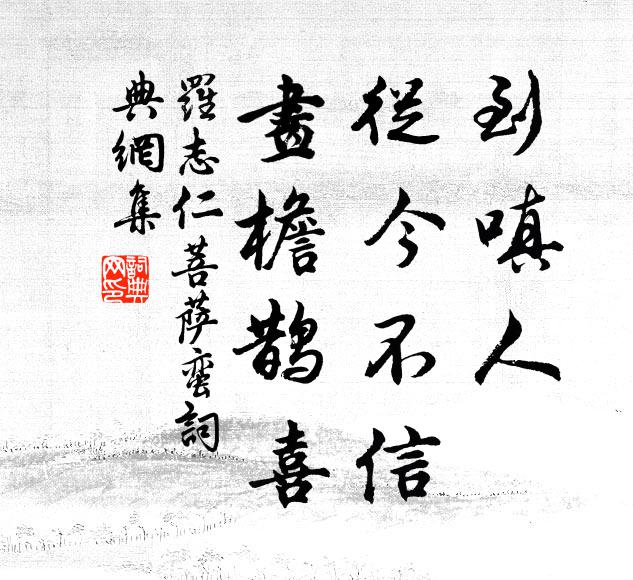 到嗔人
從今不信
畫檐鵲喜
羅志仁菩薩蠻詞
典網集
詞典網印